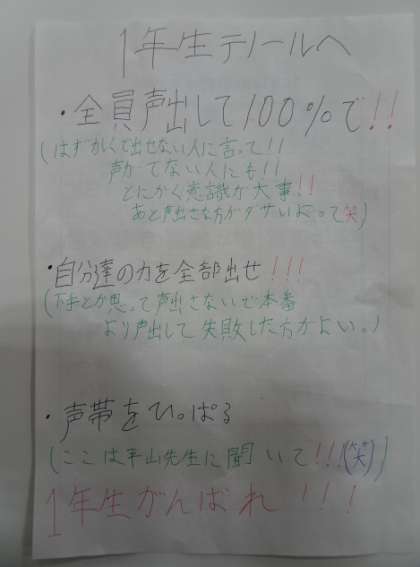 1年生テノールへ
・全員声出して100%で!!
(はずかしくて出せない人に言って!!
声がでてない人にも!!
とにかく意識が大事!!
あと声出さな方がダサいよって笑)
・自分達の力を全部出せ!!!
(下手とか思って声出さないで本番
より声出して失敗した方がよい。)
・声帯をひっぱる
(ここは平山先生に聞いて!!!(笑))
1年生がんばれ!!!